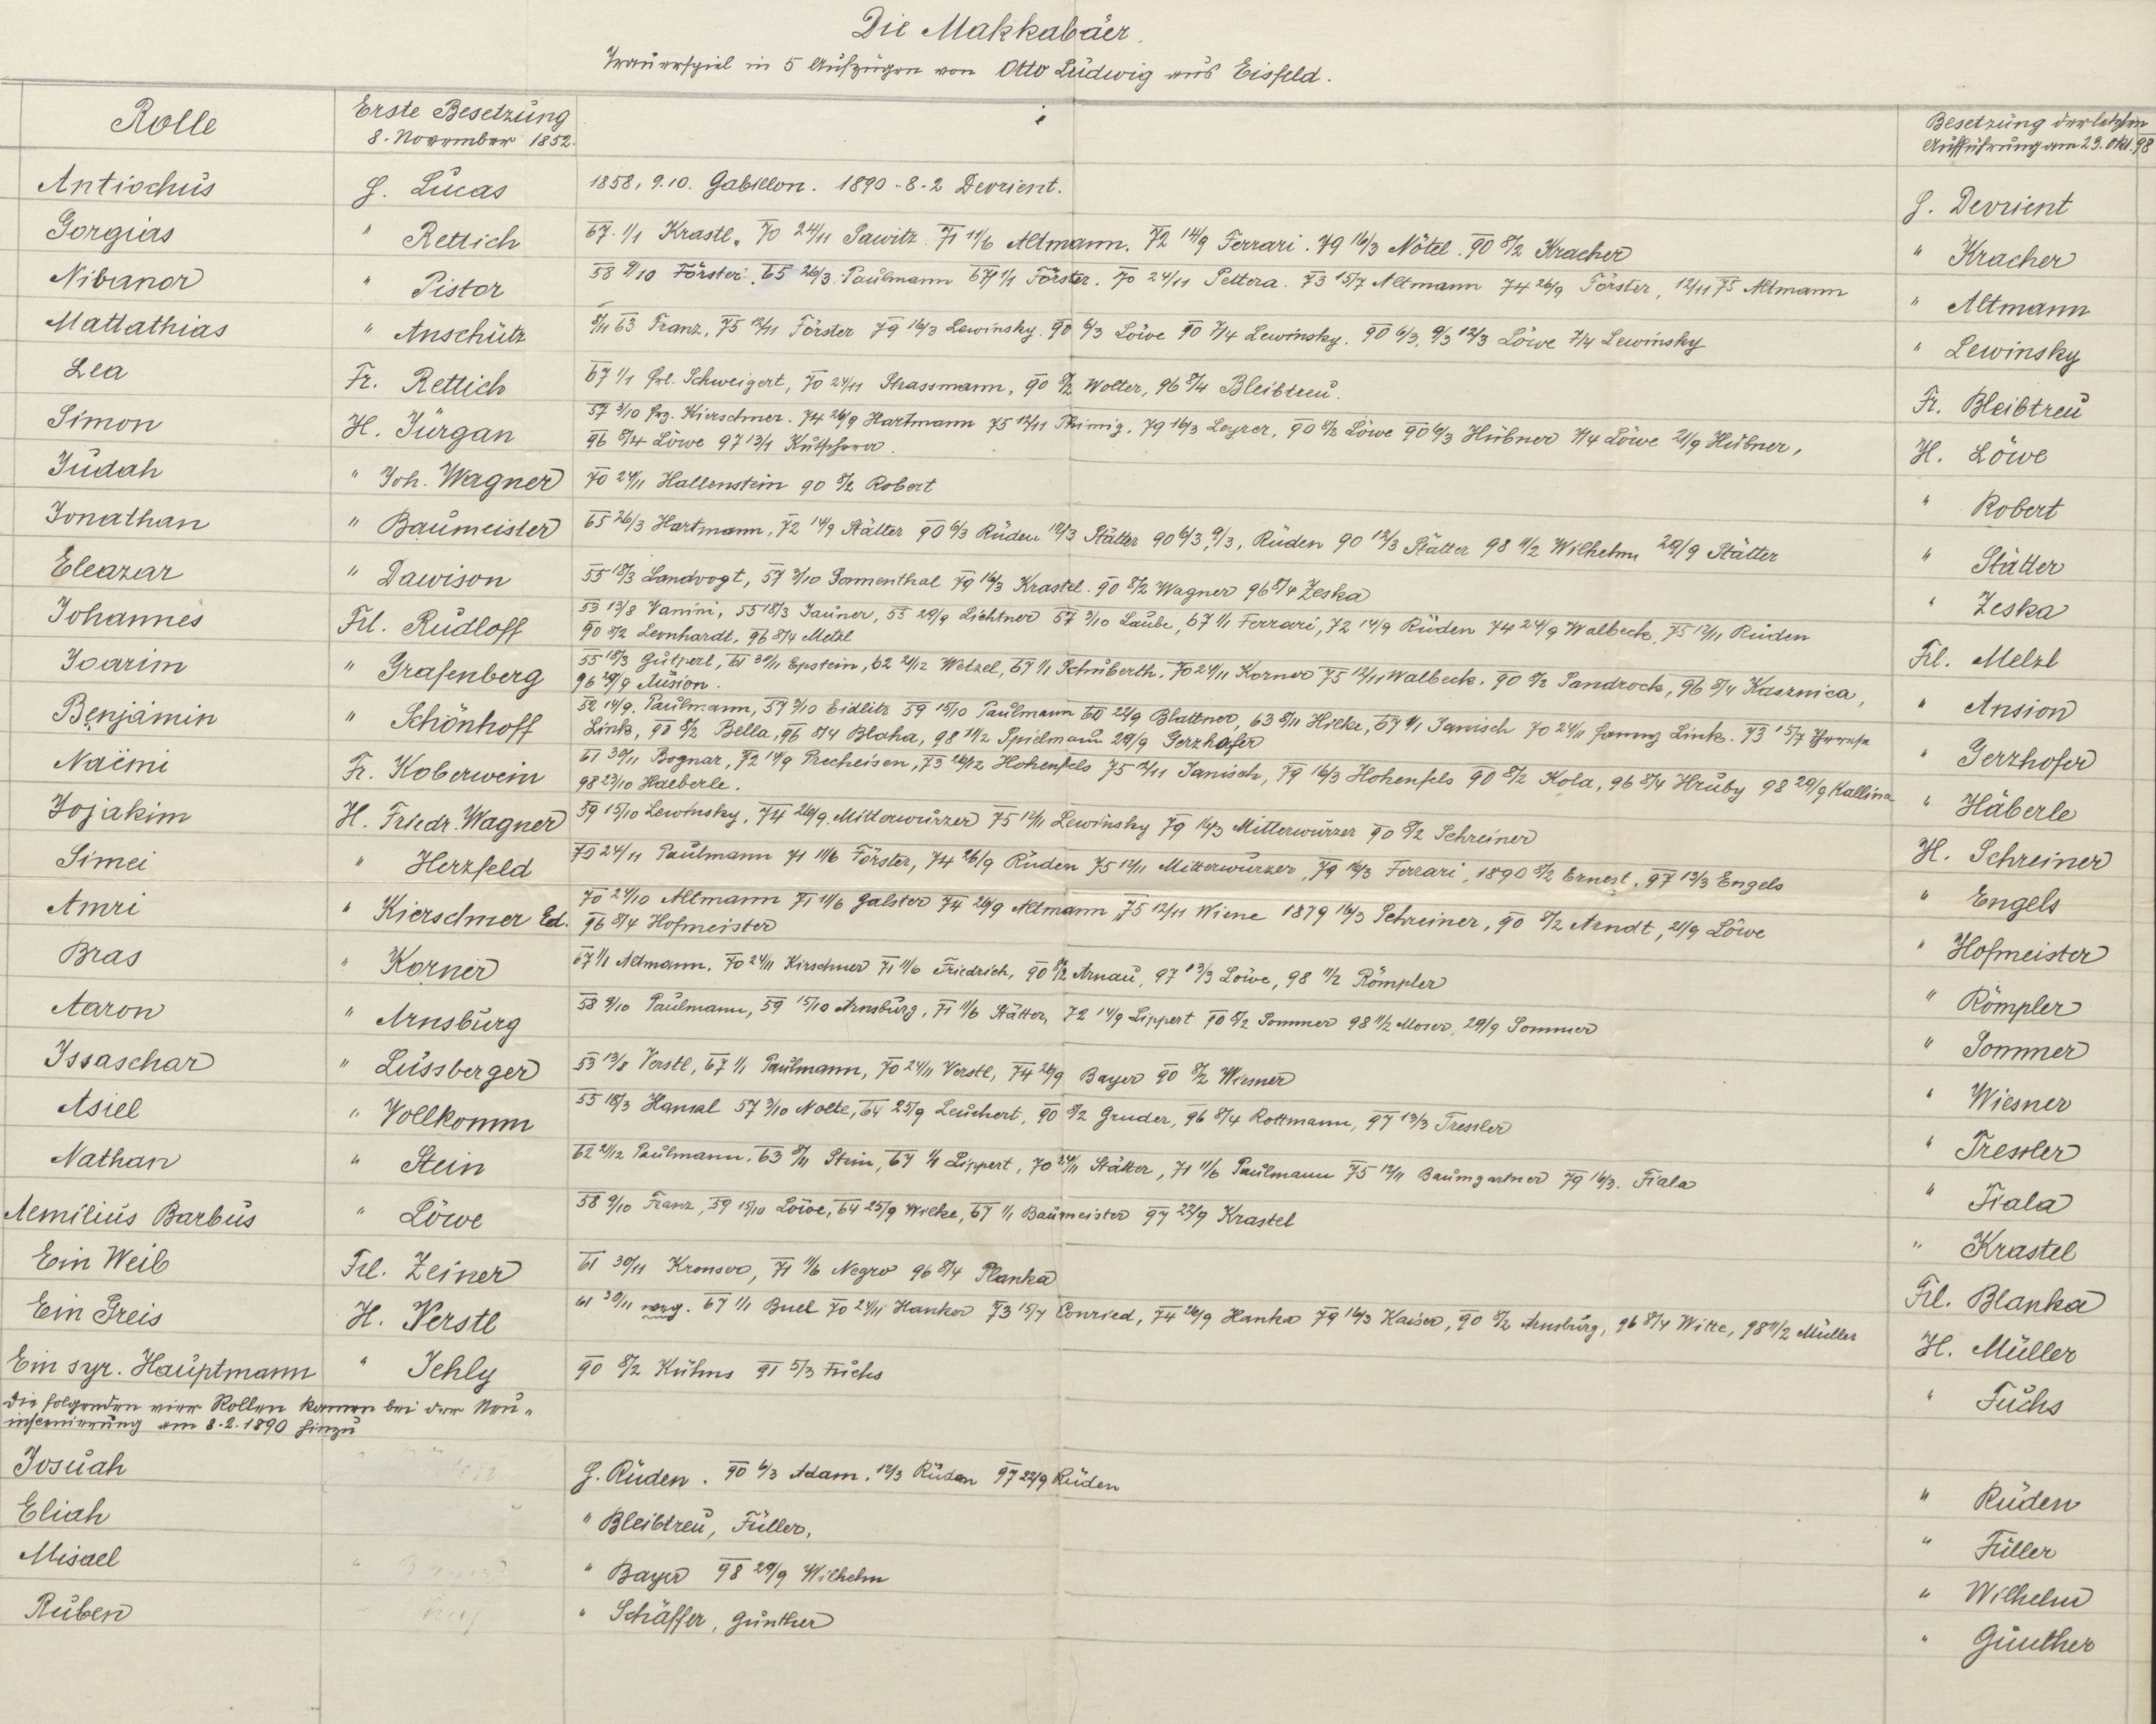 Die Makkabäer.
Trauerspiel in 5 Aufzügen von Otto Ludwig aus Eisfeld.
Rolle Erste Besetzung Besetzung der letzten
8. November 1852. Aufführung am 23. Okt. 98
Antiochus H. Lucas 1858, 9.10. Gabillon. 1890 - 8 - 2 Devrient. H. Devrient
Gorgias " Rettich 67. 1/1 Krastl, 70 24/11 Sawitz. 71 11/6 Altmann. 72 14/9 Ferrari. 79 16/3 Nötel. 90 8/2 Kracher " Kracher
Nikanor " Pistor 58 9/10 Förster. 65 26/3. Paulmann 67 1/1 Förster. 70 24/11 Pettera. 73 15/7 Altmann 74 26/9 Förster, 12/11 75 Altmann " Altmann
Mattathias " Anschütz 8/11 63 Franz, 75 12/11 Förster 79 16/3 Lewinsky. 90 6/3 Löwe 90 7/4 Lewinsky. 90 6/3, 9/3 12/3 Löwe 7/4 Lewinsky " Lewinsky
Lea Fr. Rettich 67 1/1 Frl. Schweigert, 70 24/11 Strassmann, 90 8/2 Wolter, 96 8/4 Bleibtreu. Fr. Bleibtreu
Simon H. Jürgan 57 3/10 Kierschner. 74 26/9 Hartmann 75 12/11 Thimig. 79 16/3 Leyrer, 90 8/2 Löwe 90 6/3 Hübner 7/4 Löwe 21/9 Hübner, H. Löwe
96 8/4 Löwe 97 13/1 Kutschera.
Judah " Joh. Wagner 70 24/11 Hallenstein 90 8/2 Robert " Robert
Jonathan " Baumeister 65 26/3 Hartmann, 72 14/9 Stätter 90 6/3 Rüden 12/3 Stätter 90 6/3, 9/3, Rüden 90 12/3 Stätter 98 11/2 Wilhelm 29/9 Stätter " Stätter
Eleazar " Dawison 55 18/3 Landvogt, 57 3/10 Sonnenthal 79 16/3 Krastel. 90 8/2 Wagner 96 8/4 Zeska " Zeska
Johannes Frl. Rudloff 53 13/8 Vanini, 55 18/3 Jauner, 55 29/9 Lichtner 57 3/10 Laube, 67 1/1 Ferrari, 72 14/9 Rüden 74 24/9 Walbeck, 75 12/11 Rüden Frl. Melzl
90 8/2 Leonhardt, 96 8/4 Metzl
Joarim " Grafenberg 55 18/3 Gutperl, 61 30/11 Epstein, 62 21/12 Wetzel, 67 1/1 Schuberth. 70 24/11 Korner 75 12/11 Walbeck. 90 8/2 Sandrock, 96 8/4 Kasznica, " Ansion
96 29/9 Ansion.
Benjamin " Schönhoff 52 14/9. Paulmann, 57 3/10 Eidlitz 59 15/10 Paulmann 60 22/9 Blattner, 63 8/11 Hilke, 67 1/1 Janisch 70 24/11 Fanny Link. 73 15/7 Therese " Gerzhofer
Link, 90 8/2 Bella, 96 8/4 Blaha, 98 11/2 Spielmann 29/9 Gerzhofer
Naemi Fr. Koberwein 61 30/11 Bognar, 72 14/9 Precheisen, 73 26/12 Hohenfels 75 12/11 Janisch, 79 16/3 Hohenfels 90 8/2 Kola, 96 8/4 Hruby 98 29/9 Kallina " Häberle
98 23/10 Haeberle.
Jojakim H. Friedr. Wagner 59 15/10 Lewinsky, 74 26/9. Mitterwurzer 75 12/11 Lewinsky 79 16/3 Mitterwurzer 90 8/2 Schreiner H. Schreiner
Simei " Herzfeld 70 24/11 Paulmann 71 11/6 Förster, 74 26/9 Rüden 75 12/11 Mitterwurzer, 79 16/3 Ferrari, 1890 8/2 Ernest. 97 13/3 Engels " Engels
Amri " Kierschner Ed. 70 24/10 Altmann 71 11/6 Galster 74 26/9 Altmann 75 12/11 Wiene 1879 16/3 Schreiner, 90 8/2 Arndt, 21/9 Löwe " Hofmeister
96 8/4 Hofmeister
Bras " Korner 67 1/1 Altmann. 70 24/11 Kirschner 71 11/6 Friedrich, 90 8/2 Arnau, 97 13/3 Löwe, 98 11/2 Römpler " Römpler
Aaron " Arnsburg 58 9/10 Paulmann, 59 15/10 Arnsburg, 71 11/6 Stätter, 72 14/9 Lippert 90 8/2 Sommer 98 11/2 Moser, 29/9 Sommer " Sommer
Issaschar " Lussberger 53 13/8 Verstl, 67 1/1 Paulmann, 70 24/11 Verstl, 74 26/9 Bayer 90 8/2 Wiesner " Wiesner
Asiel " Vollkomm 55 18/3 Hansal 57 3/10 Nolte, 64 25/9 Leuchert, 90 8/2 Gruder, 96 8/4 Rottmann, 97 13/3 Tressler " Tressler
Nathan " Stein 62 21/12 Paulmann. 63 8/11 Stein, 67 1/1 Lippert, 70 24/11 Stätter, 71 11/6 Paulmann 75 12/11 Baumgartner 79 16/3. Fiala " Fiala
Aemilius Barbus " Löwe 58 9/10 Franz, 59 15/10 Löwe, 64 25/9 Wilke, 67 1/1 Baumeister 97 22/9 Krastel " Krastel
Ein Weib Frl. Zeiner 61 30/11 Kronser, 71 11/6 Negro 96 8/4 Planka Frl. Blanka
Ein Greis H. Verstl 61 30/11 weg. 67 1/1 Buel 70 24/11 Hanker 73 15/7 Conried, 74 26/9 Hanka 79 16/3 Kaiser, 90 8/2 Arnsburg, 96 8/4 Witte, 98 11/2 Müller H. Müller
Ein syr. Hauptmann " Jehly 90 8/2 Kühns 91 5/3 Fuchs " Fuchs
Die folgenden vier Rollen kamen bei der Neu-
inszenierung am 8.2.1890 hinzu
Josuah H. Rüden. 90 6/3 Adam, 12/3 Rüden 97 22/9 Rüden " Rüden
Eliah " Bleibtreu, Füller, " Füller
Misael " Bayer 98 29/9 Wilhelm " Wilhelm
Ruben " Schäffer, Günther " Günther